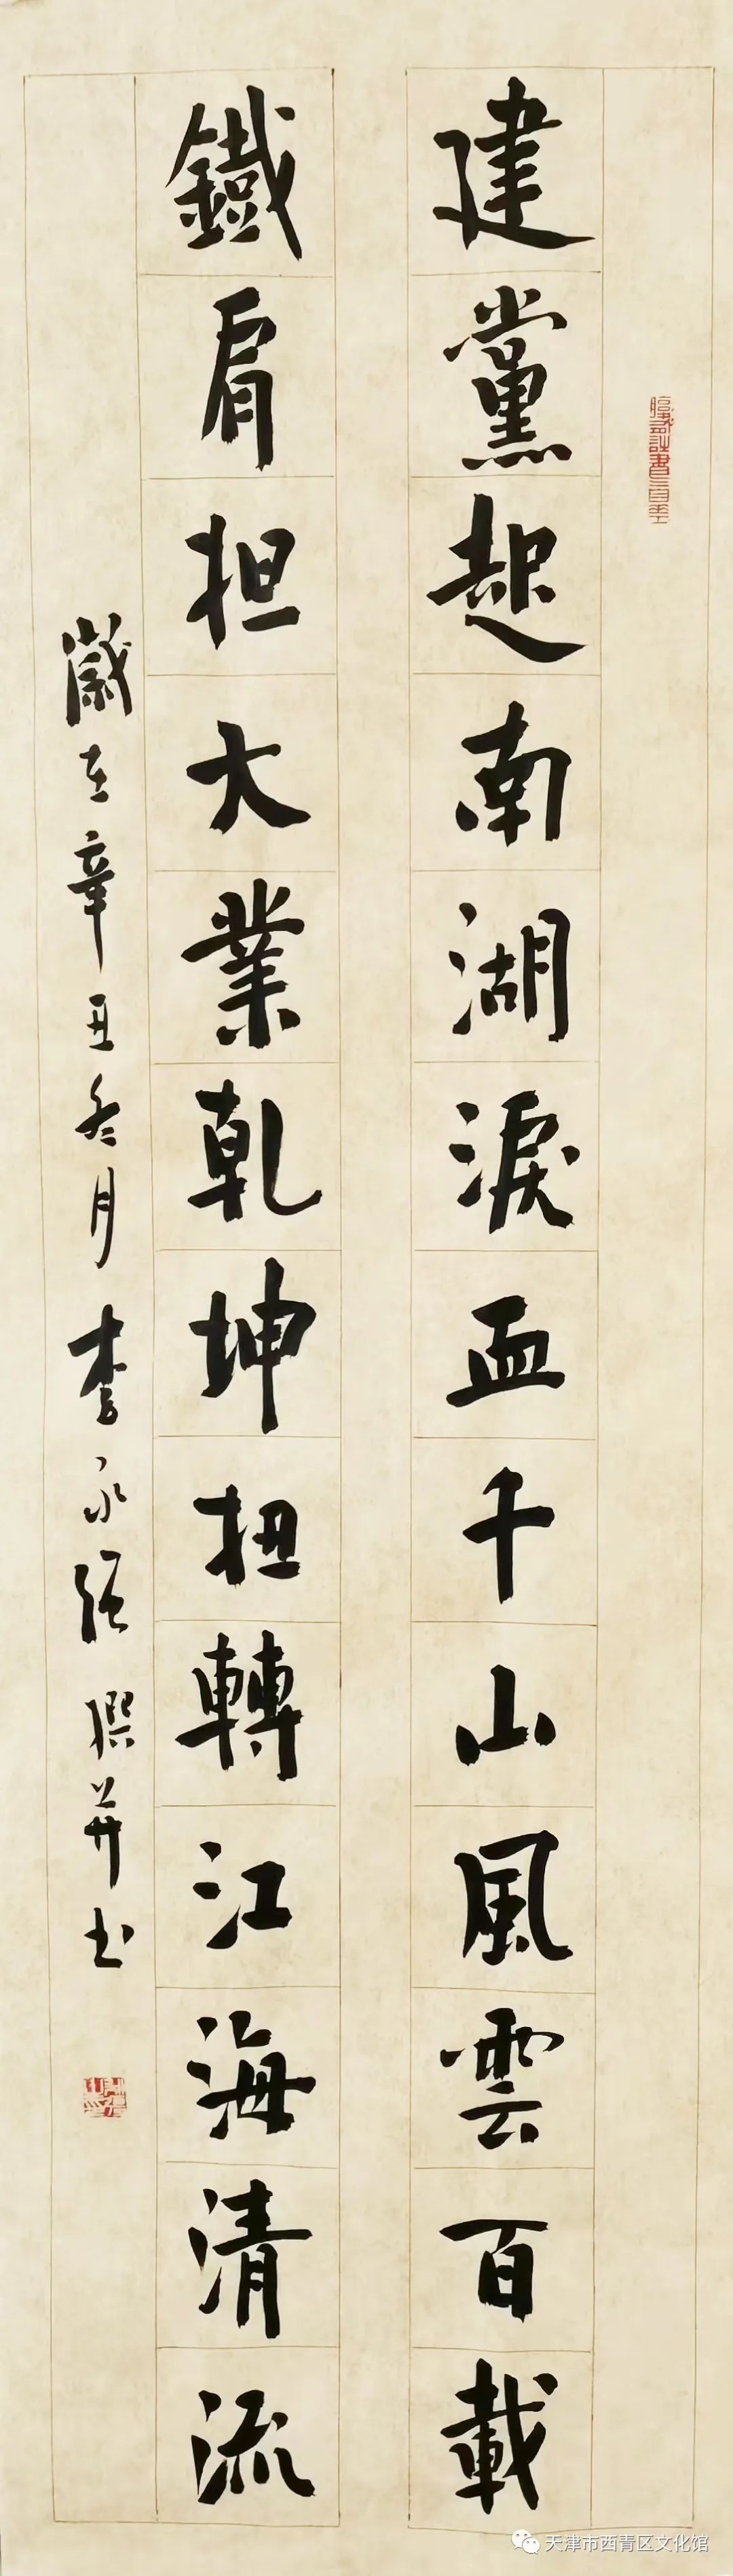 建黨起南湖淚血千山風雲百載
鐵肩担大業乾坤扭轉江海清流
歲在辛丑冬月李永强撰并书
天津市西青区文化馆